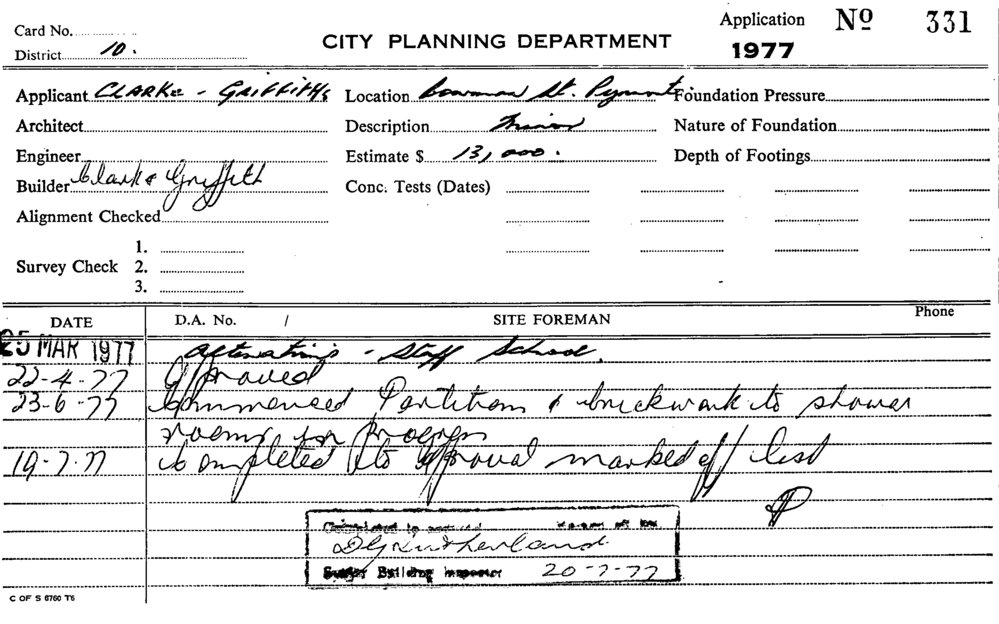 Card No.
District 10.
CITY PLANNING DEPARTMENT
Application Nº 331
1977
Applicant CLARKE - GRIFFITHS
Location Bowman St. Pyrmont.
Foundation Pressure
Architect
Description Minor
Nature of Foundation
Engineer
Estimate $ 13,000.
Depth of Footings
Builder Clark & Griffith
Conc. Tests (Dates)
Alignment Checked
1.
Survey Check 2.
3.
DATE D.A. No. / SITE FOREMAN Phone
25 MAR 1977 Alterations - Staff School.
22-4-77 Approved
23-6-77 Commenced Partitions & brickwork to shower
rooms in progress
19-7-77 Completed to approval marked off list
Completed to
D G Sutherland
Building Inspector 20-7-77
C OF S 6760 T6